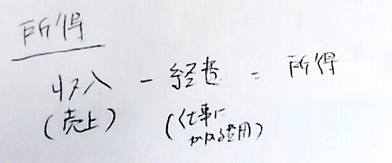 所得
収入 - 経費 = 所得
(売上) (仕事に
かかる費用)